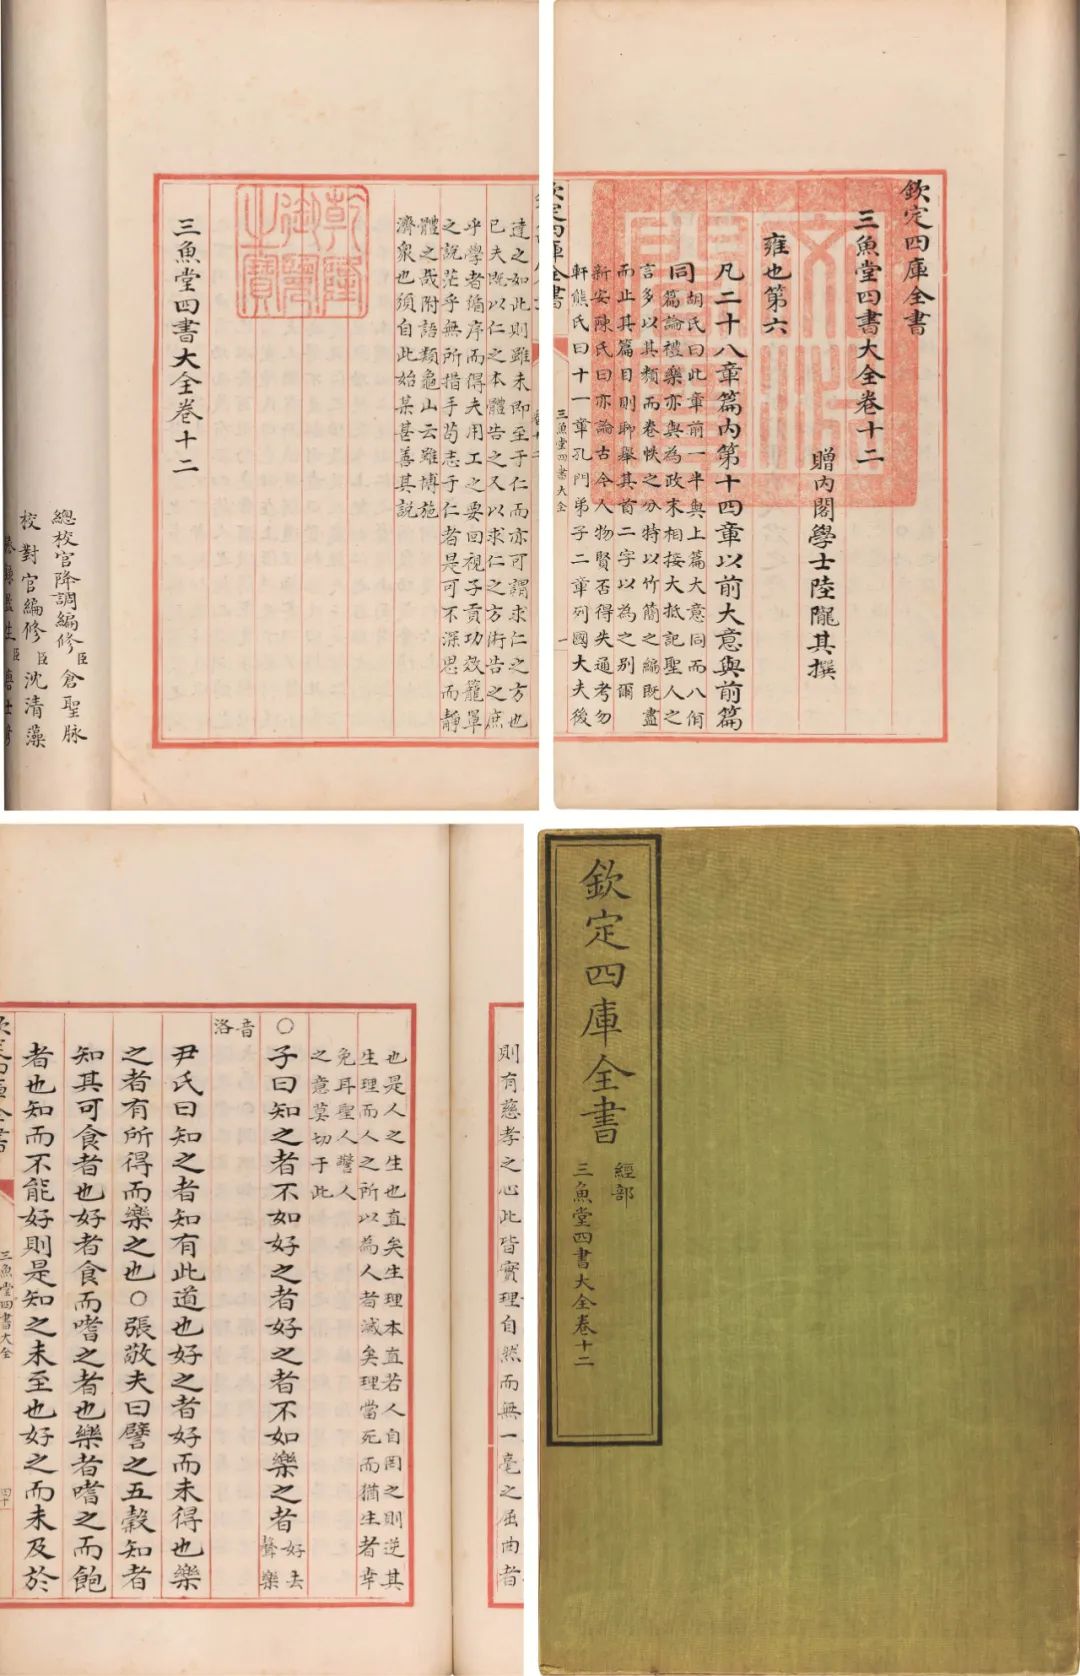 欽定四庫全書
三魚堂四書大全卷十二
贈內閣學士陸隴其撰
雍也第六
凡二十八章篇內第十四章以前大意與前篇
同胡氏曰此章前一半與上篇大意同而八佾
篇論禮樂亦與為政末相接大抵記聖人之
言多以其類而卷帙之分特以竹簡之編既盡
而止其篇目則聊舉其首二字以為之别爾
新安陳氏曰亦論古今人物賢否得失通考勿
軒熊氏曰十一章孔門弟子二章列國大夫後
欽定四庫全書
三魚堂四書大全
一
達之如此則雖未即至于仁而亦可謂求仁之方也
已夫既以仁之本體告之又以求仁之方術告之庶
乎學者循序而得夫用工之要回視子貢功效籠罩
之說茫乎無所措手苟志于仁者是可不深思而靜
體之哉附語類龜山云雖博施
濟衆也須自此始某甚善其說
乾隆御覽之寶
三魚堂四書大全卷十二
總校官降調編修臣倉聖脉
校對官編修臣沈清藻
則有慈孝之心此皆實理自然而無一毫之屈曲者
也是人之生也直矣生理本直若人自罔之則逆其
生理而人之所以為人者滅矣理當死而猶生者幸
免耳聖人警人
之意莫切于此
○子曰知之者不如好之者好之者不如樂之者好去聲樂
音洛
尹氏曰知之者知有此道也好之者好而未得也樂
之者有所得而樂之也○張敬夫曰譬之五穀知者
知其可食者也好者食而嗜之者也樂者嗜之而飽
者也知而不能好則是知之未至也好之而未及於
三魚堂四書大全
四十
欽定四庫全書
經部
三魚堂四書大全卷十二